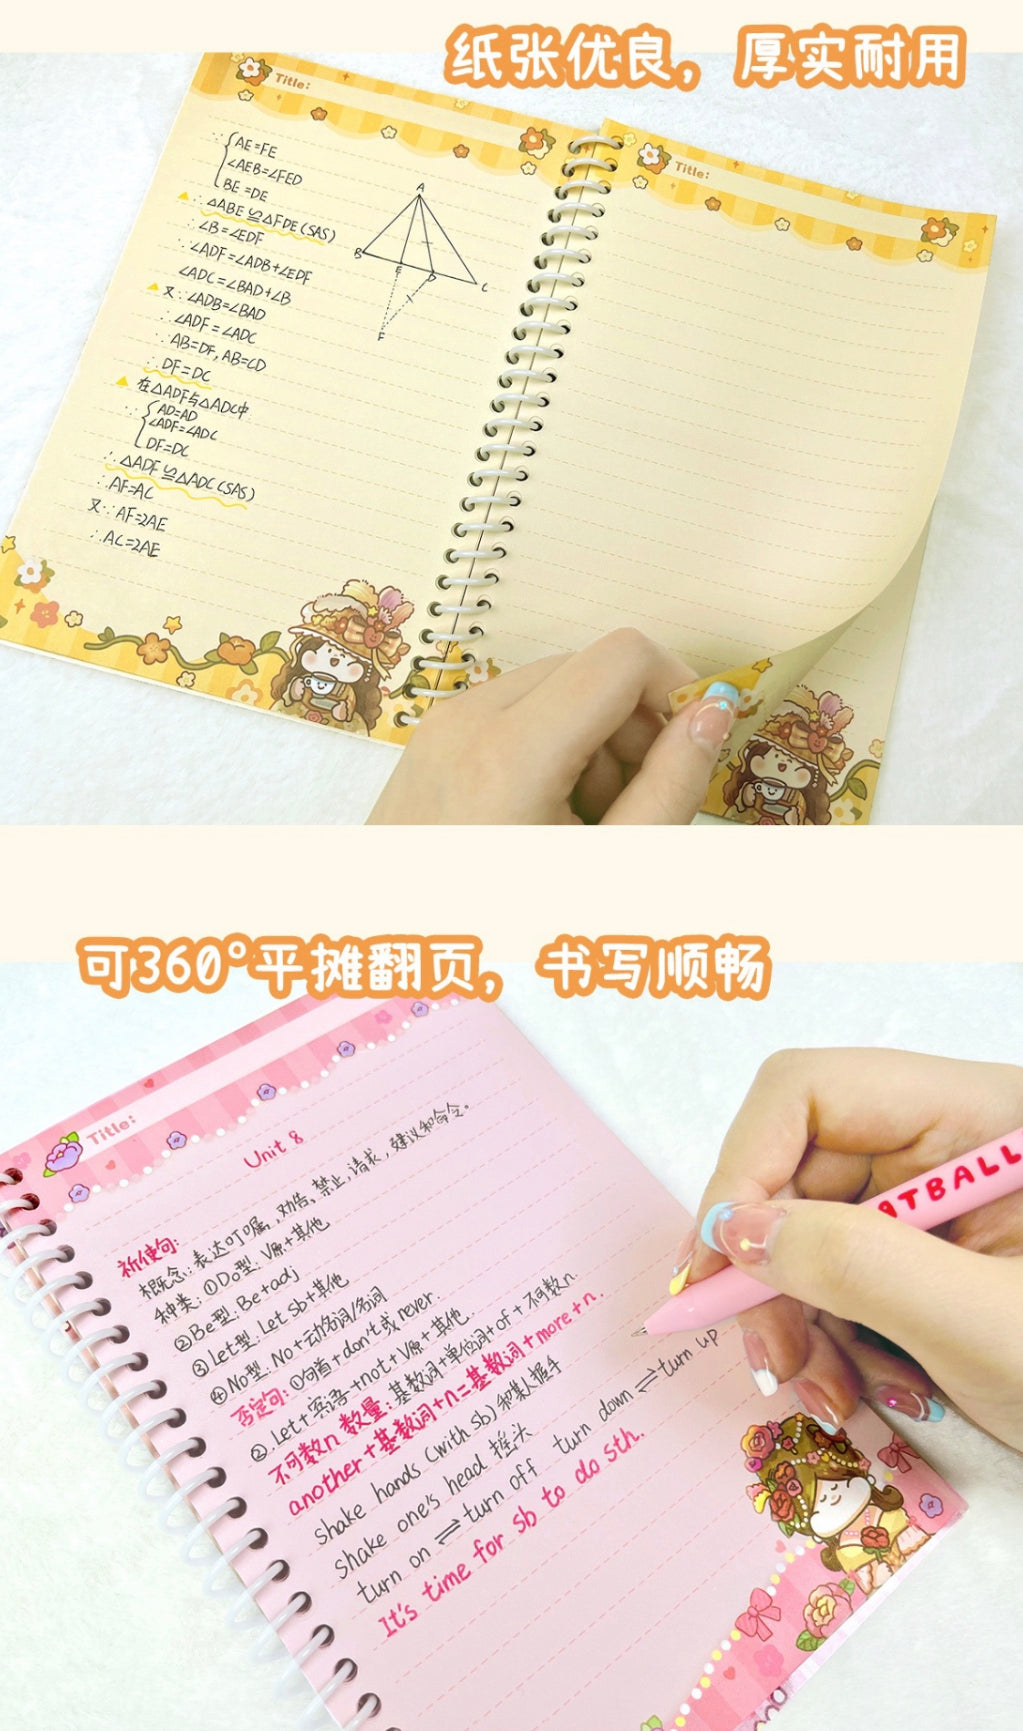 纸张优良，厚实耐用
Title:
∵ { AE=FE
∠AEB=∠FED
BE=DE
∴ △ABE≌△FDE(SAS)
∴ ∠B=∠EDF
∵ ∠ADF=∠ADB+∠EDF
∠ADC=∠BAD+∠B
又∵∠ADB=∠BAD
∴ ∠ADF=∠ADC
∵ AB=DF, AB=CD
∴ DF=DC
在△ADF与△ADC中
∵ { AD=AD
∠ADF=∠ADC
DF=DC
∴ △ADF≌△ADC(SAS)
∴ AF=AC
又∵ AF=2AE
∴ AC=2AE
A
B
E
D
C
F
Title:
可360°平摊翻页，书写顺畅
Title:
Unit 8
祈使句:
概念: 表达叮嘱, 劝告, 禁止, 请求, 建议和命令。
种类: ①Do型: V原+其他
②Be型: Be+adj
③Let型: Let sb+其他
④No型: No+动名词/名词
否定句: ①句首+don't或never.
②.Let+宾语+not+V原+其他.
不可数n 数量: 基数词+单位词+of+不可数n.
another+基数词+n=基数词+more+n.
shake hands (with sb) 和某人握手
shake one's head 摇头
turn on ⇌ turn off turn down ⇌ turn up
It's time for sb to do sth.
ATBALL